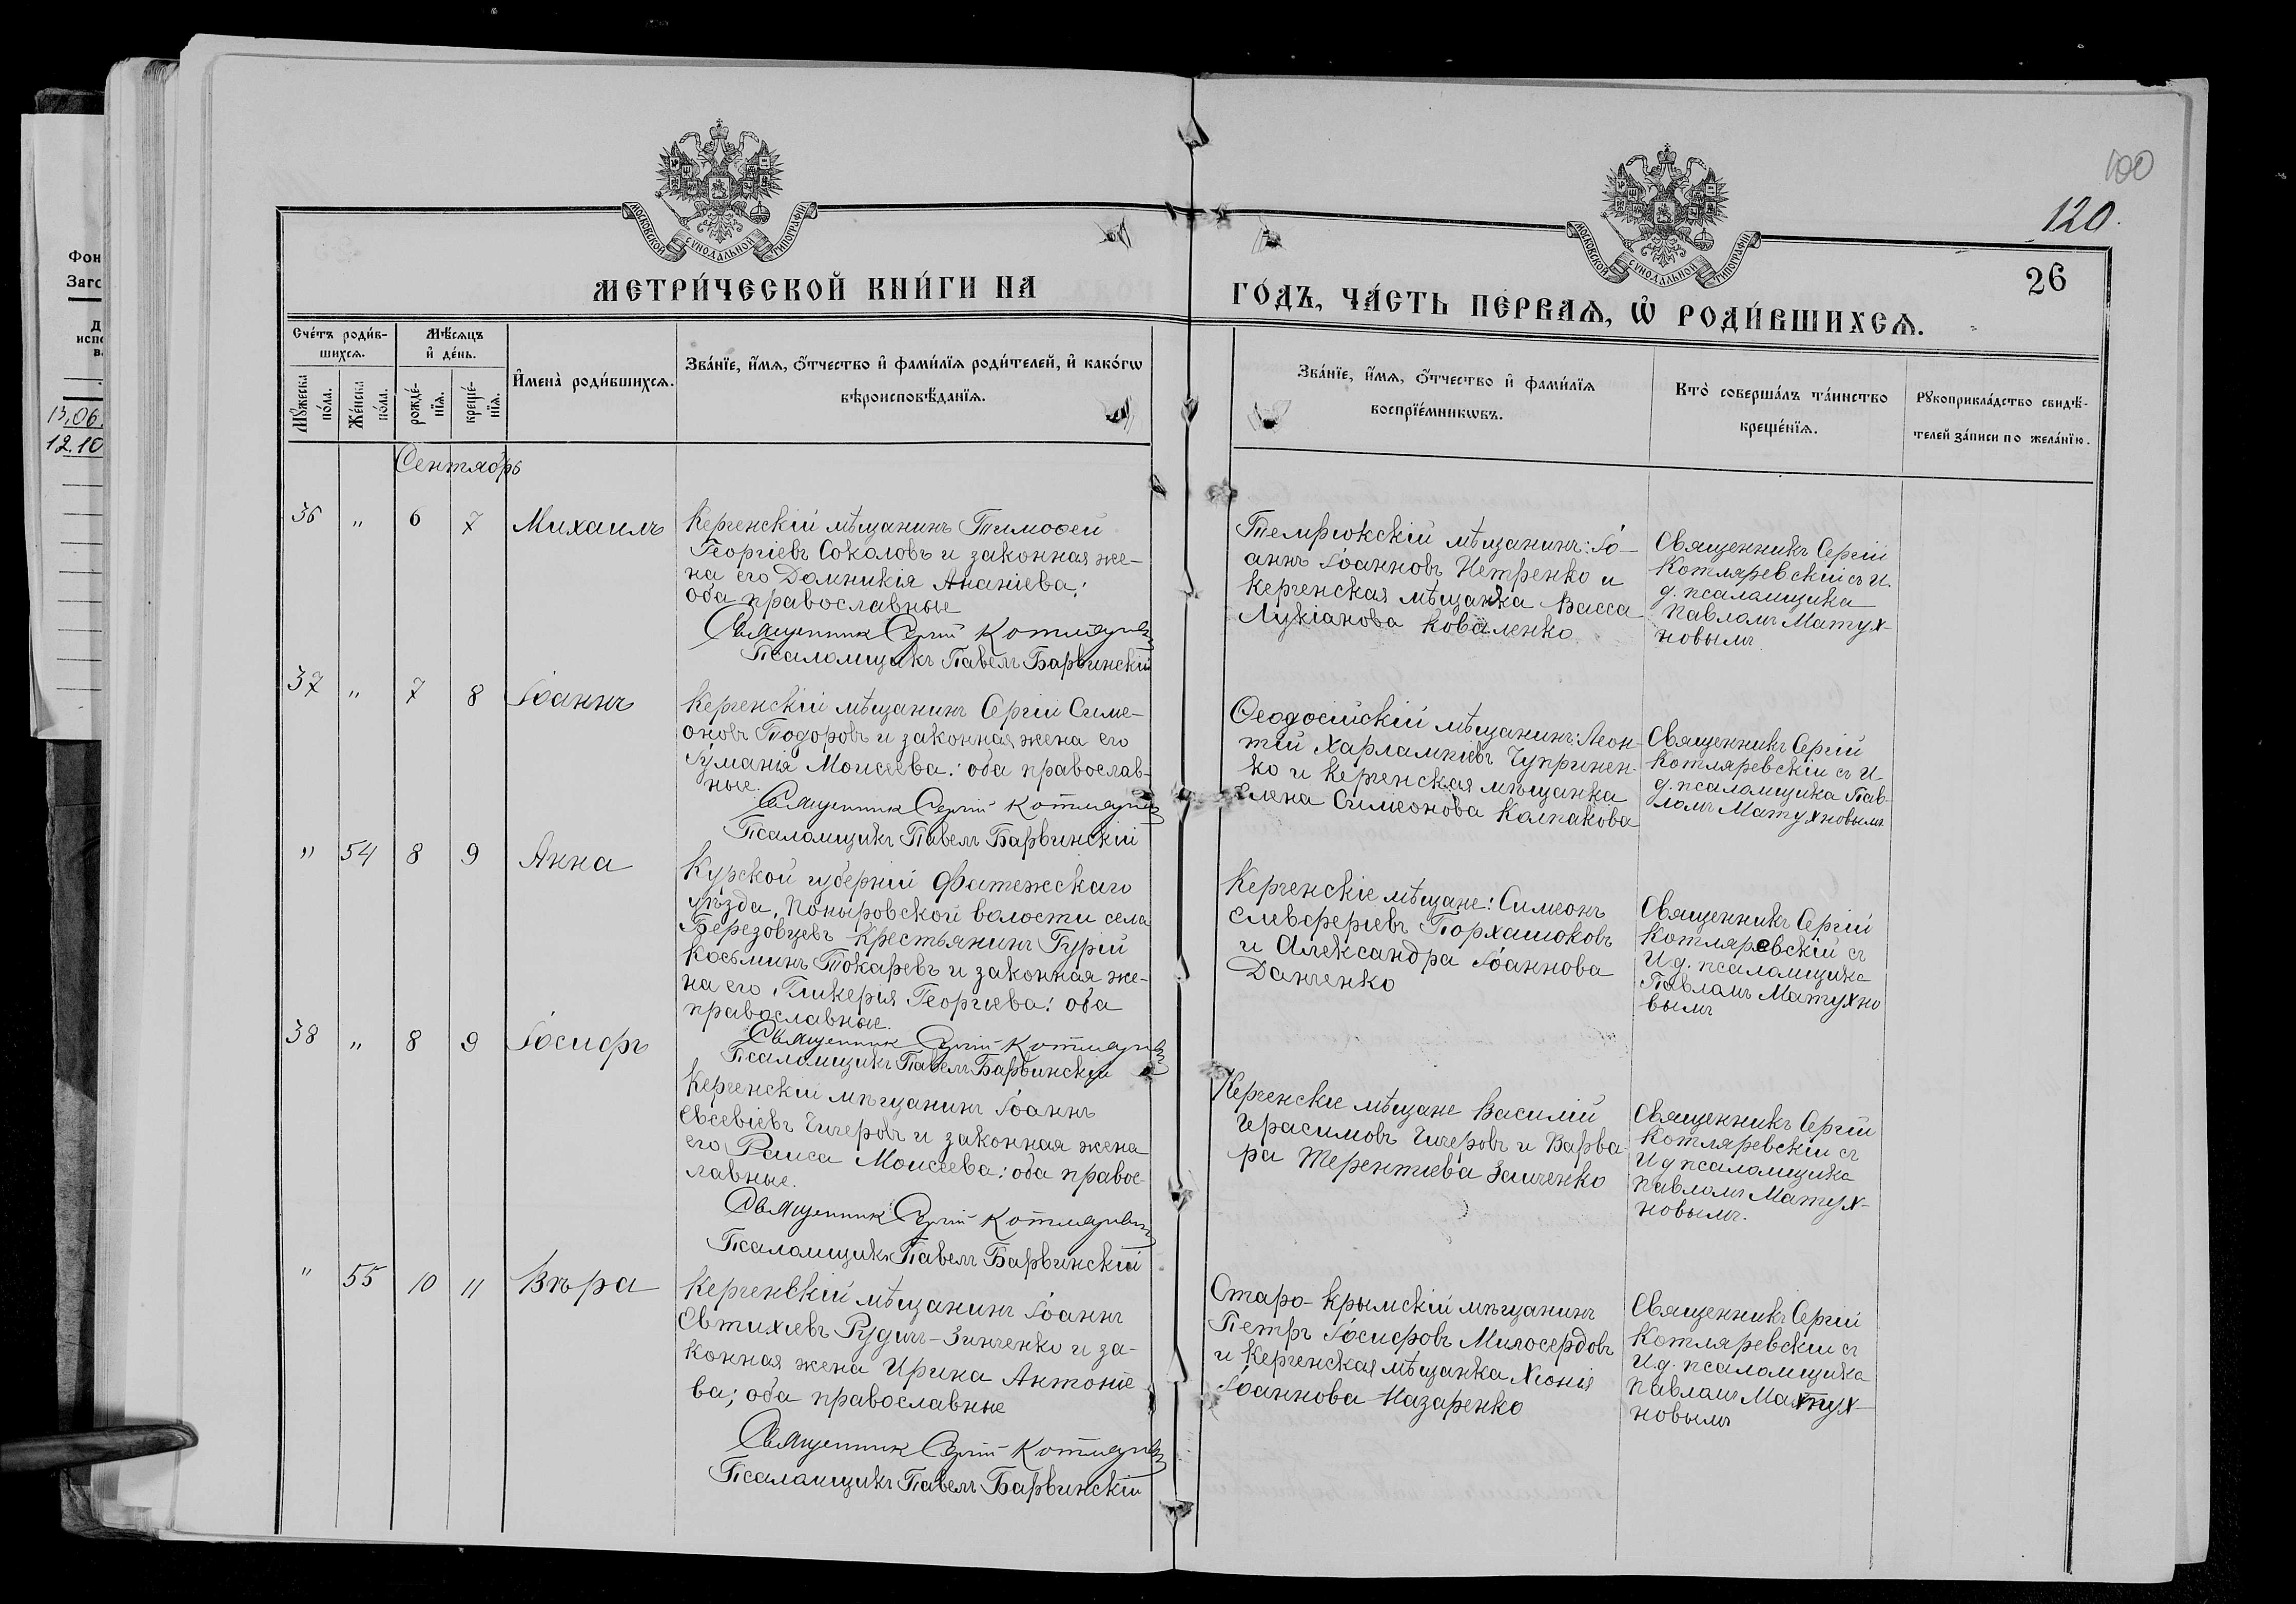 100
120.
26
МОСКОВСКОЙ СѴНОДАЛЬНОЙ ТИПОГРАФІИ
МОСКОВСКОЙ СѴНОДАЛЬНОЙ ТИПОГРАФІИ
МЕТРИ́ЧЕСКОЙ КНИ́ГИ НА
ГО́ДЪ, ЧА́СТЬ ПЕ́РВАѦ, Ѡ҆ РОДИ́ВШИХСѦ.
Сче́тъ роди́в-
шихсѧ.
Мꙋ́жеска
по́ла.
Же́нска
по́ла.
Мѣ́сѧцъ
и҆ де́нь.
рожде́-
нїѧ.
креще́-
нїѧ.
И҆мена̀ роди́вшихсѧ.
Зва́нїе, и҆́мѧ, ѻ҆́тчество и҆ фами́лїѧ роди́телей, и҆ како́гѡ
вѣроисповѣ́данїѧ.
Зва́нїе, и҆́мѧ, ѻ҆́тчество и҆ фами́лїѧ
воспрїе́мникѡвъ.
Кто̀ соверша́лъ та́инство
креще́нїѧ.
Рꙋкоприкла́дство свидѣ́-
телей за́писи по жела́нїю.
Фон
Заго
13.06.
12.10
Сентябрь
36 " 6 7 Михаилъ
Керченскій мѣщанинъ Тимоѳей
Георгіевъ Соколовъ и законная же-
на его Домникія Ананіева:
оба православные
Священник Сергій Котляревскій
Псаломщикъ Павелъ Барвинскій
Темрюкскій мѣщанинъ: Іо-
аннъ Іоанновъ Петренко и
Керченская мѣщанка Васса
Лукіанова Коваленко
Священникъ Сергій
Котляревскій съ И.
д. псаломщика
Павломъ Матух-
новымъ.
37 " 7 8 Іоаннъ
Керченскій мѣщанинъ Сергій Симе-
оновъ Тодоровъ и законная жена его
Іуманія Моисеева: оба православ-
ные.
Священник Сергій Котляревскій
Псаломщикъ Павелъ Барвинскій
Ѳеодосійскій мѣщанинъ: Леон-
тій Харлампіевъ Чупринен-
ко и Керченская мѣщанка
Елена Симеонова Колпакова
Священникъ Сергій
Котляревскій съ И
д. псаломщика Пав-
ломъ Матухновымъ
" 54 8 9 Анна
Курской губерніи Фатежскаго
уѣзда, Поныровской волости села
Березовцевъ крестьянинъ Гурій
Косьминъ Токаревъ и законная же-
на его, Гликерія Георгіева: оба
православные.
Священник Сергій Котляревскій
Псаломщикъ Павелъ Барвинскій
Керченскіе мѣщане: Симеонъ
Елевферіевъ Порхашоковъ
и Александра Іоаннова
Данченко
Священникъ Сергій
Котляревскій съ
И д. псаломщика
Павломъ Матухно
вымъ
38 " 8 9 Іосифъ
Керченскій мѣщанинъ Іоаннъ
Евсевіевъ Чичеровъ и законная жена
его Раиса Моисеева: оба правос-
лавные.
Священник Сергій Котляревскій
Псаломщикъ Павелъ Барвинскій
Керченскіе мѣщане Василій
Герасимовъ Чичеровъ и Варва-
ра Терентіева Заиченко
Священникъ Сергій
Котляревскій съ
И д псаломщика
Павломъ Матух-
новымъ.
" 55 10 11 Вѣра
Керченскій мѣщанинъ Іоаннъ
Евтихіевъ Рудич-Зинченко и за-
конная жена Ирина Антоніе
ва; оба православные
Священник Сергій Котляревскій
Псаломщикъ Павелъ Барвинскій
Старо-Крымскій мѣщанинъ
Петръ Іосифовъ Милосердовъ
и Керченская мѣщанка Хіонія
Іоаннова Назаренко
Священникъ Сергій
Котляревскій съ
И.д. псаломщика
Павломъ Матух-
новымъ